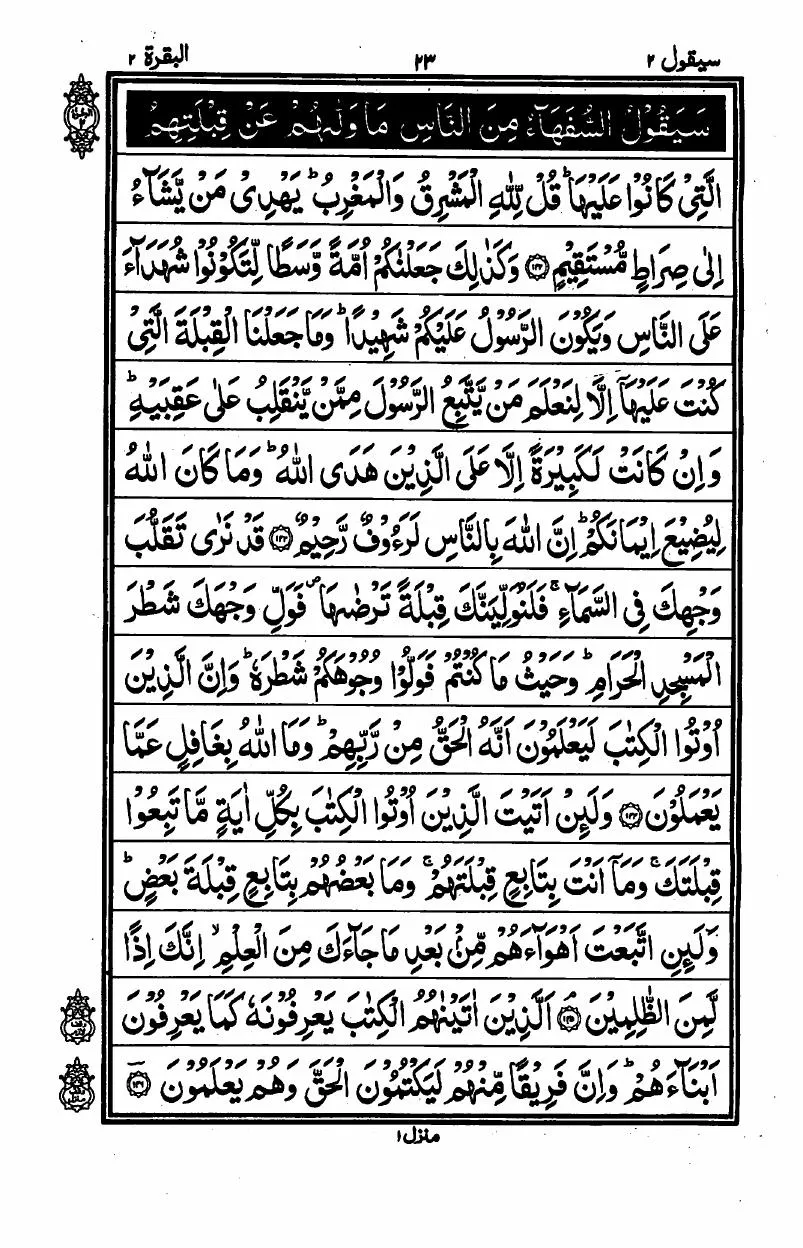 سيقول ٢ ٢٣ البقرة ٢
سَيَقُوْلُ السُّفَهَآءُ مِنَ النَّاسِ مَا وَلّٰىهُمْ عَنْ قِبْلَتِهِمُ
الَّتِىْ كَانُوْا عَلَيْهَا ؕ قُلْ لِّلّٰهِ الْمَشْرِقُ وَالْمَغْرِبُ ؕ يَهْدِىْ مَنْ يَّشَآءُ
اِلٰى صِرَاطٍ مُّسْتَقِيْمٍ ﴿۱۴۲﴾ وَكَذٰلِكَ جَعَلْنٰكُمْ اُمَّةً وَّسَطًا لِّتَكُوْنُوْا شُهَدَآءَ
عَلَى النَّاسِ وَيَكُوْنَ الرَّسُوْلُ عَلَيْكُمْ شَهِيْدًا ؕ وَمَا جَعَلْنَا الْقِبْلَةَ الَّتِىْ
كُنْتَ عَلَيْهَآ اِلَّا لِنَعْلَمَ مَنْ يَّتَّبِعُ الرَّسُوْلَ مِمَّنْ يَّنْقَلِبُ عَلٰى عَقِبَيْهِ ؕ
وَاِنْ كَانَتْ لَكَبِيْرَةً اِلَّا عَلَى الَّذِيْنَ هَدَى اللّٰهُ ؕ وَمَا كَانَ اللّٰهُ
لِيُضِيْعَ اِيْمَانَكُمْ ؕ اِنَّ اللّٰهَ بِالنَّاسِ لَرَءُوْفٌ رَّحِيْمٌ ﴿۱۴۳﴾ قَدْ نَرٰى تَقَلُّبَ
وَجْهِكَ فِى السَّمَآءِ ۚ فَلَنُوَلِّيَنَّكَ قِبْلَةً تَرْضٰىهَا ۪ فَوَلِّ وَجْهَكَ شَطْرَ
الْمَسْجِدِ الْحَرَامِ ؕ وَحَيْثُ مَا كُنْتُمْ فَوَلُّوْا وُجُوْهَكُمْ شَطْرَهٗ ؕ وَاِنَّ الَّذِيْنَ
اُوْتُوا الْكِتٰبَ لَيَعْلَمُوْنَ اَنَّهُ الْحَقُّ مِنْ رَّبِّهِمْ ؕ وَمَا اللّٰهُ بِغَافِلٍ عَمَّا
يَعْمَلُوْنَ ﴿۱۴۴﴾ وَلَئِنْ اَتَيْتَ الَّذِيْنَ اُوْتُوا الْكِتٰبَ بِكُلِّ اٰيَةٍ مَّا تَبِعُوْا
قِبْلَتَكَ ۚ وَمَآ اَنْتَ بِتَابِعٍ قِبْلَتَهُمْ ۚ وَمَا بَعْضُهُمْ بِتَابِعٍ قِبْلَةَ بَعْضٍ ؕ
وَلَئِنِ اتَّبَعْتَ اَهْوَآءَهُمْ مِّنْۢ بَعْدِ مَا جَآءَكَ مِنَ الْعِلْمِ ۙ اِنَّكَ اِذًا
لَّمِنَ الظّٰلِمِيْنَ ﴿۱۴۵﴾ اَلَّذِيْنَ اٰتَيْنٰهُمُ الْكِتٰبَ يَعْرِفُوْنَهٗ كَمَا يَعْرِفُوْنَ
اَبْنَآءَهُمْ ؕ وَاِنَّ فَرِيْقًا مِّنْهُمْ لَيَكْتُمُوْنَ الْحَقَّ وَهُمْ يَعْلَمُوْنَ ﴿۱۴۶﴾
منزل ١